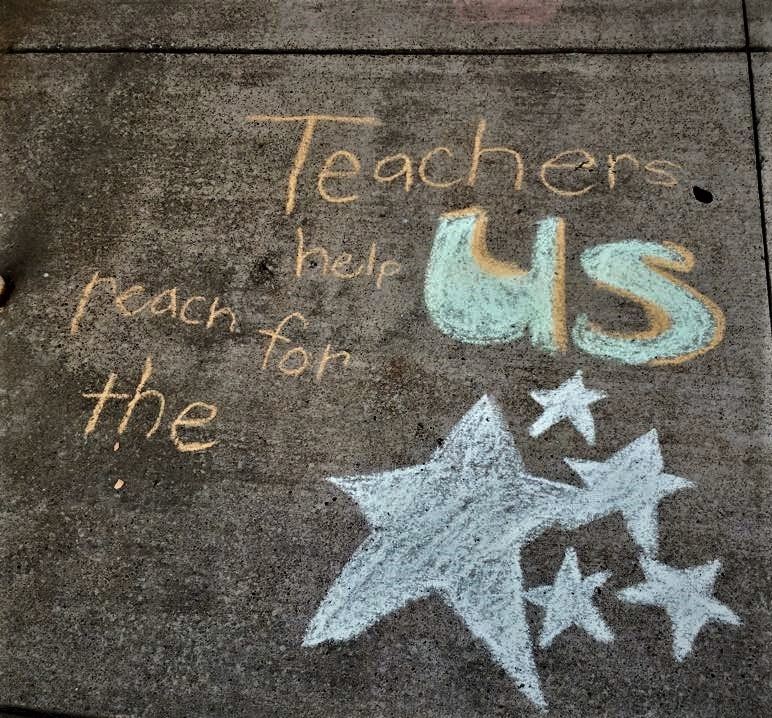 Teachers
help us
reach for
the